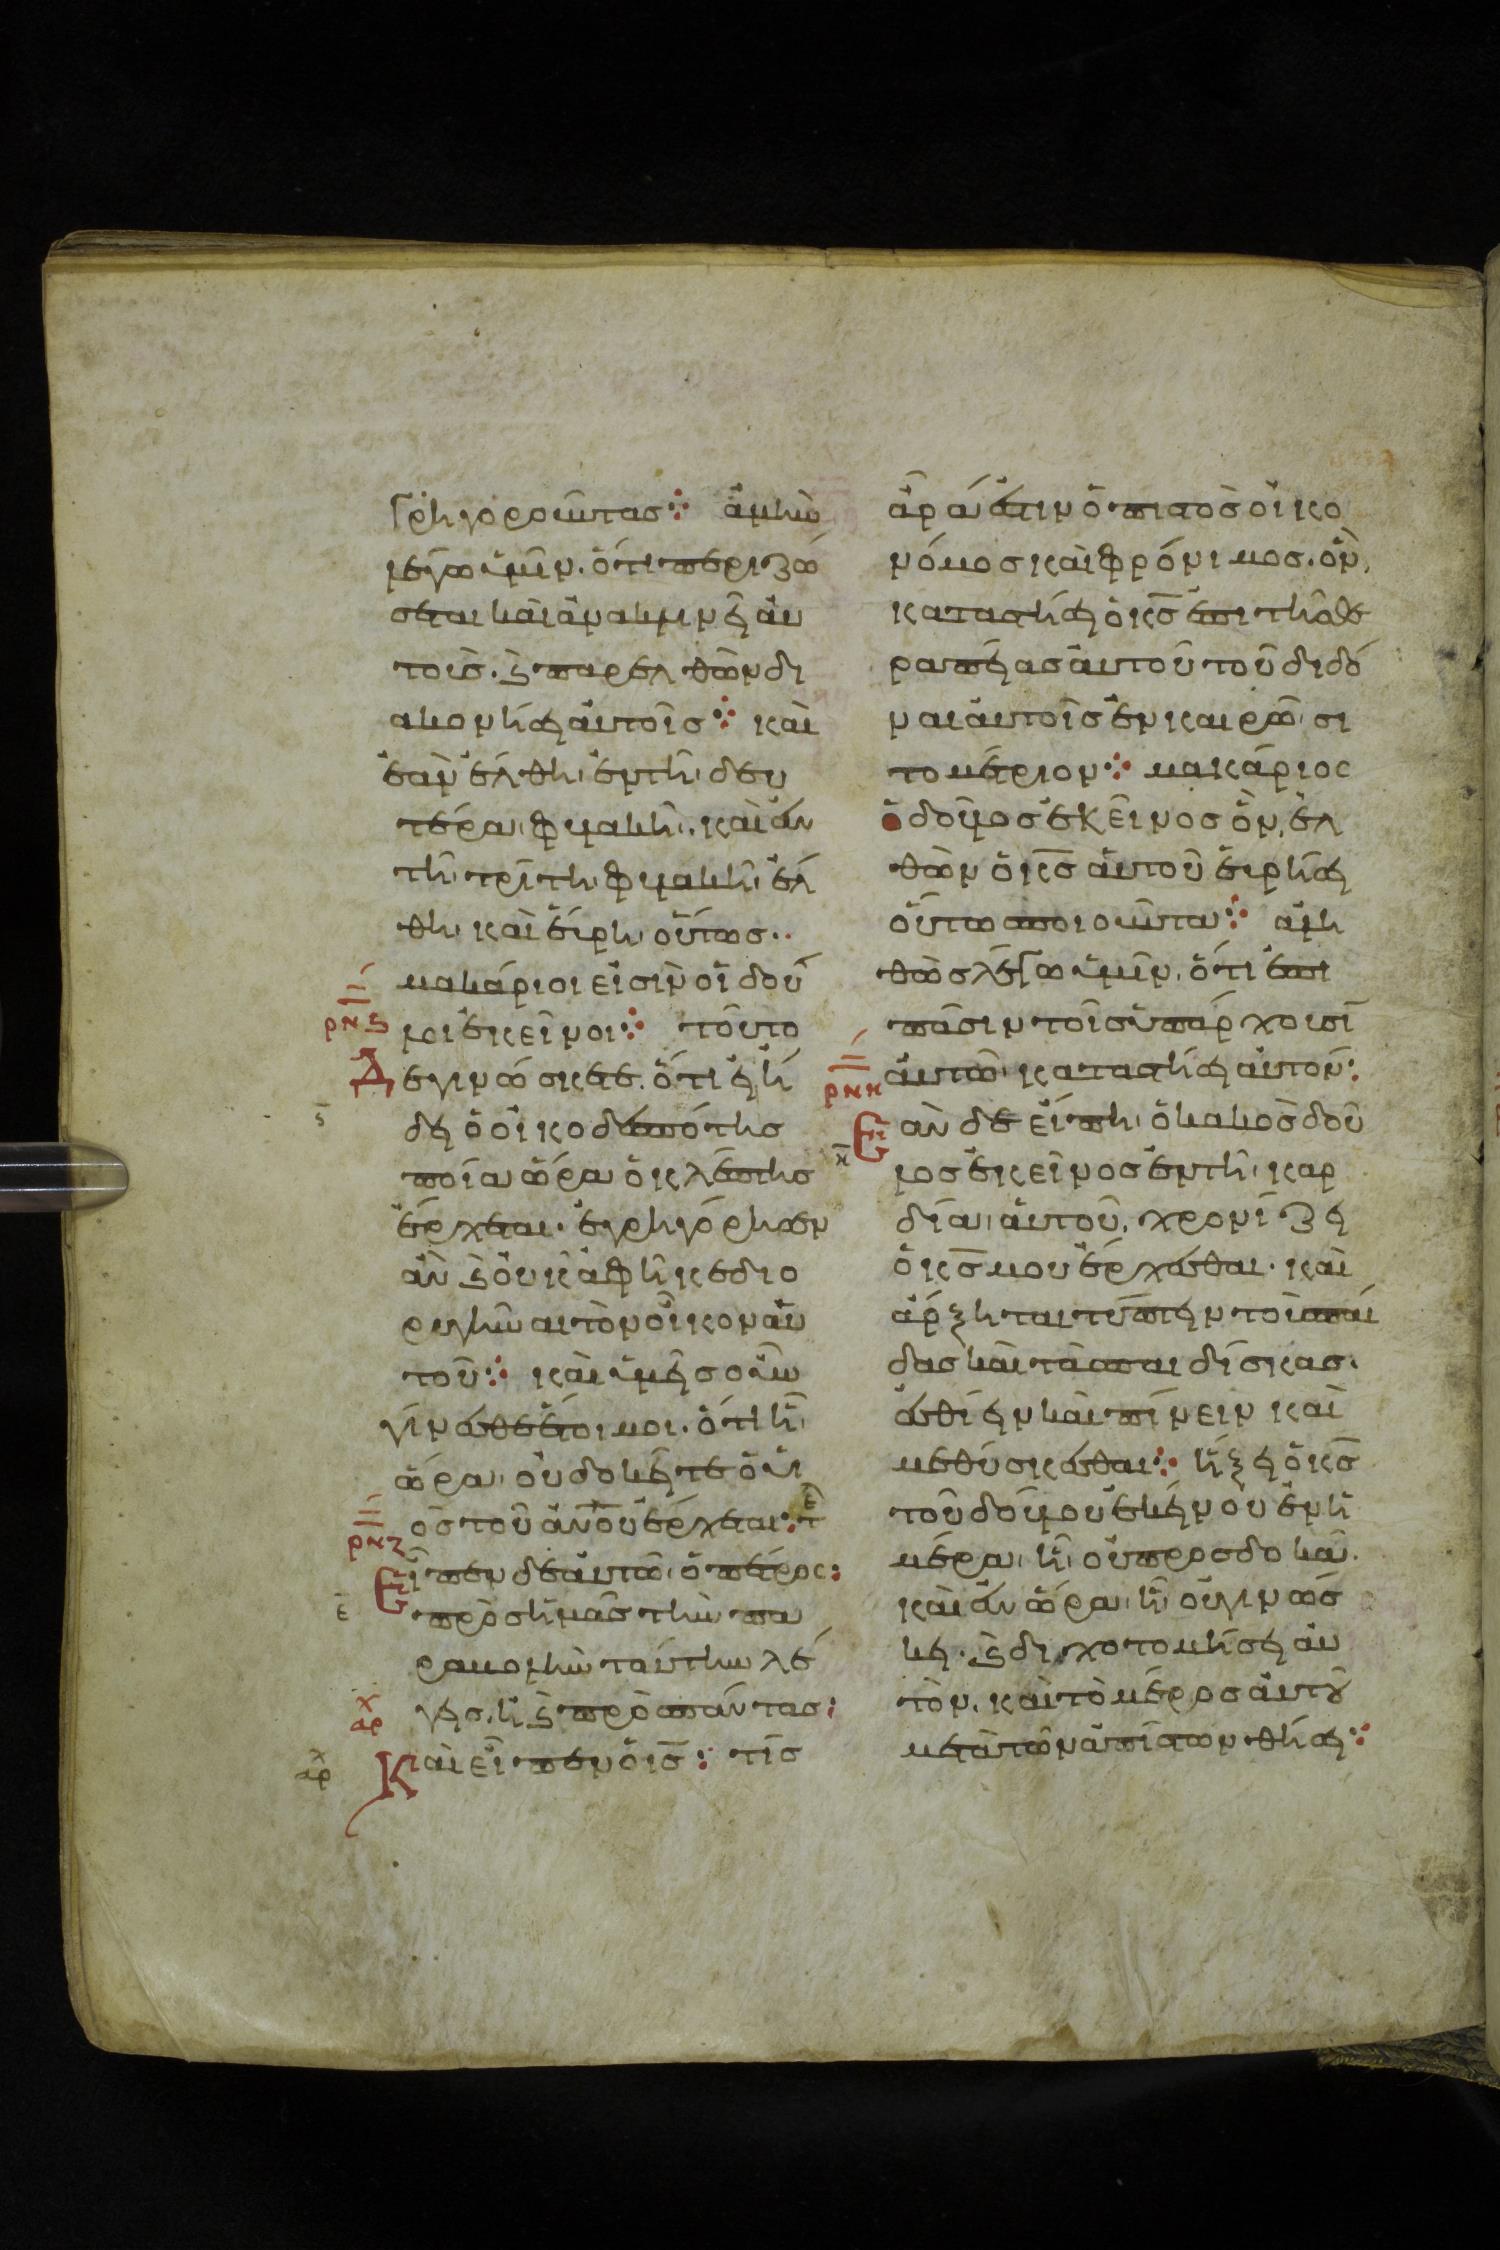 γρηγοροῦντας⁘ ἀμὴν
λέγω ὑμῖν. ὅτι περιζώ
σεται καὶ ἀνακλινεῖ αὐ
τοὺς. ϗ παρελθὼν δι
ακονήσει αὐτοῖς⁘ καὶ
ἐὰν ἔλθη ἐν τῆ δευ
τέρα φυλακῆ. καὶ ἐν
τῆ τρίτη φυλακῆ ἔλ
θη καὶ εὕρη οὕτως..
μακάριοι εἰσὶν οἱ δοῦ
λοι ἐκεῖνοι⁘ τοῦτο
ρνς
Δὲ γινώσκετε. ὅτι εἰ ἤ
ς
δει ὁ οἰκοδεσπότης
ποία ὥρα ὁ κλέπτης
ἔρχεται. ἐγρηγόρησεν
ἂν ϗ οὐκ ἀφῆκε διο
ρυγῆναι τὸν οἶκον αὐ
τοῦ⁘ καὶ ὑμεῖς οὖν
γίνεσθε ἕτοιμοι. ὅτι ἧ
ὥρα οὐ δοκεῖτε ὁ υἱ
ος τοῦ ἀν̅ο̅υ̅ ἔρχεται⁘
ρνζ
Εἶπεν δὲ αὐτῶ ὁ πέτρος:
ε
πρὸς ἡμᾶς τὴν πα
ραβολὴν ταύτην λέ
γεις. ἢ ϗ πρὸς πάντας:
αρ
Καὶ εἶπεν ὁ ι̅ς̅: τίς
αρ
ἆρα ἐστιν ὁ πιστὸς οἰκο
νόμος καὶ φρόνιμος. ὃν
καταστήσει ὁ κ̅ς̅ ἐπι τῆς θε
ραπείας αὐτοῦ τοῦ διδό
ναι αὐτοῖς ἐν καιρῶ σι
τομέτριον⁘ μακάριος
ὁ δοῦλος ἐκεῖνος ὃν. ἐλ
θὼν ὁ κ̅ς̅ αὐτοῦ εὑρήσει
οὕτω ποιοῦντα⁘ ἀλη
θὼς λέγω ὑμῖν. ὅτι ἐπι
πᾶσιν τοῖς ὑπάρχουσι
αὐτοῦ καταστήσει αὐτον:
ρνη
Εὰν δὲ εἴπη ὁ κακὸς δοῦ
λος ἐκεῖνος ἐν τῆ καρ
δία αὐτοῦ. χρονίζει
ὁ κ̅ς̅ μου ἔρχεσθαι. καὶ
ἄρξηται τύπτειν τοὺς παί
δας καὶ τὰς παιδίσκας.
ἐσθίειν καὶ πίνειν καὶ
μεθύσκεσθαι⁘ ἥξει ὁ κ̅ς̅
τοῦ δούλου ἐκείνου ἐν ἡ
μέρα ἧ οὐ προσδοκᾶ.
καὶ ἐν ὥρα ἧ οὐ γινώσ
κει. ϗ διχοτομήσει αὐ
τὸν. καὶ τὸ μέρος αὐτου
μετὰ τῶν ἀπίστων θήσει⁘